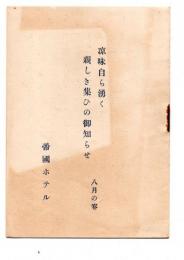 凉味自ら湧く
親しき集ひの御知らせ
八月の
帝國ホテル